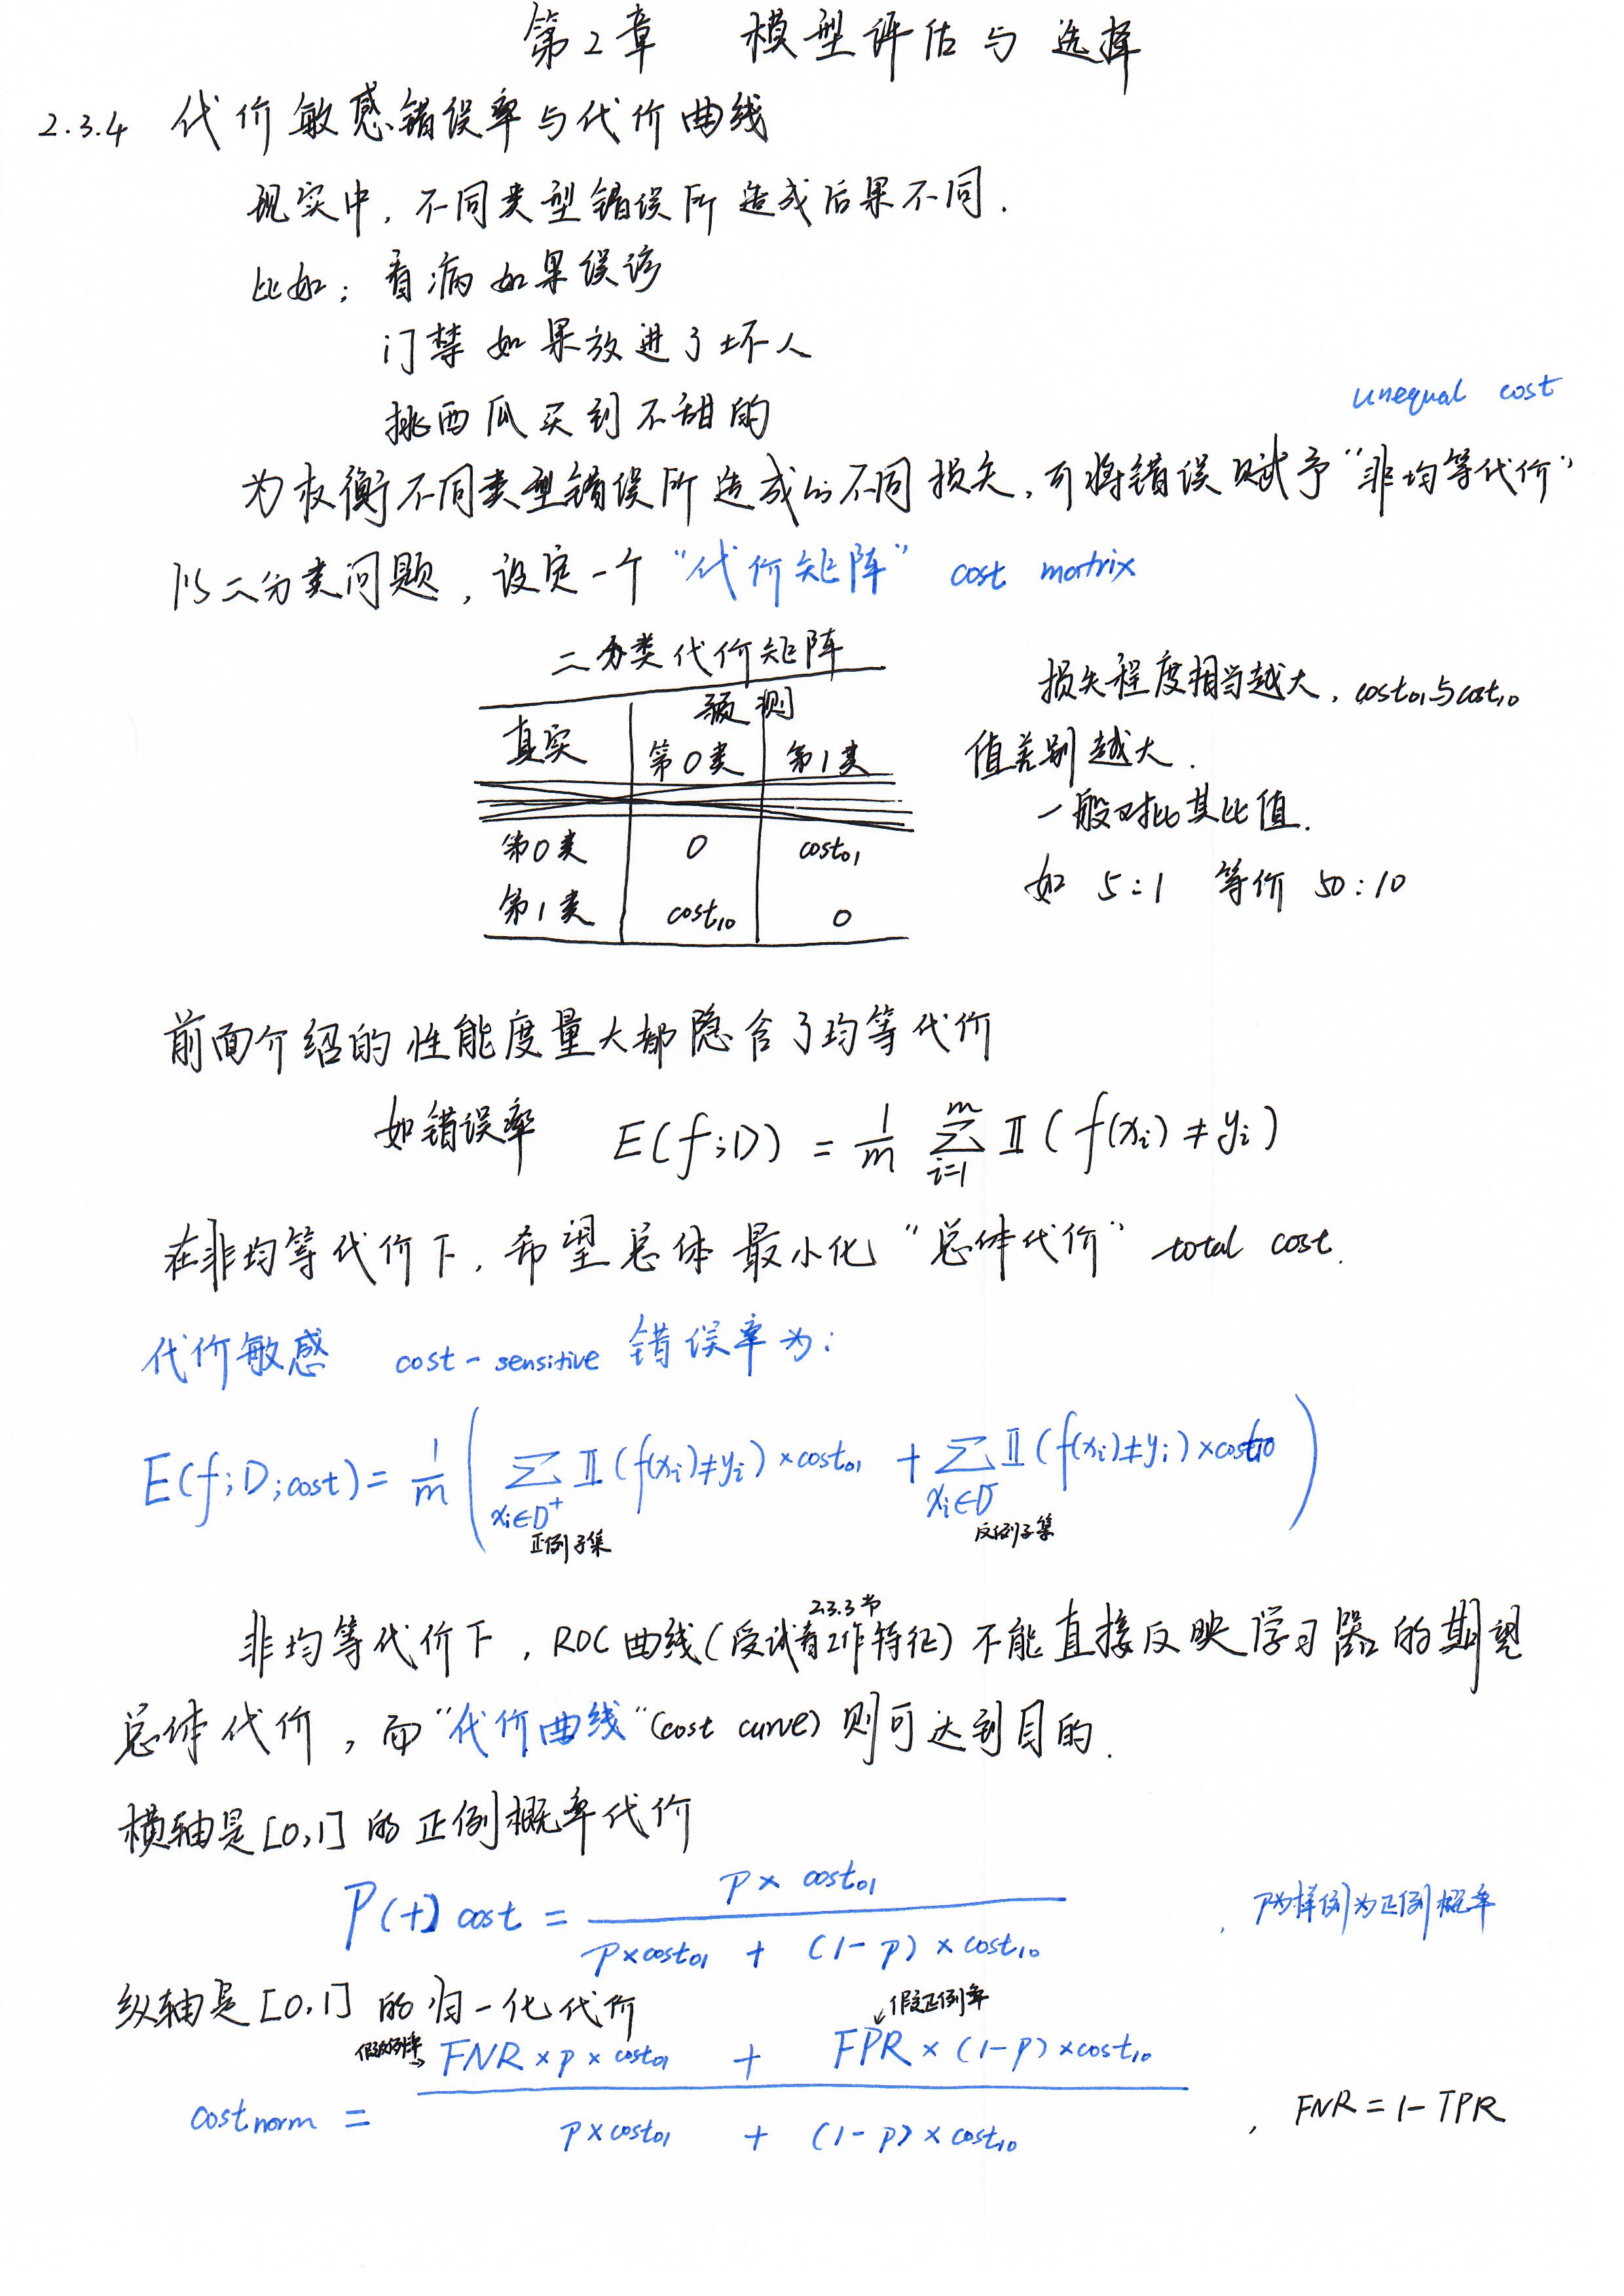 第2章 模型评估与选择
2.3.4 代价敏感错误率与代价曲线
现实中, 不同类型错误所造成后果不同.
比如: 看病如果误诊
门禁如果放进了坏人
挑西瓜买到不甜的
unequal cost
为权衡不同类型错误所造成的不同损失, 可将错误赋予“非均等代价”
以二分类问题, 设定一个“代价矩阵” cost matrix
二分类代价矩阵
预测
真实 第0类 第1类
第0类 0 cost₀₁
第1类 cost₁₀ 0
损失程度相当越大, cost₀₁与cost₁₀
值差别越大.
一般对比其比值.
如 5:1 等价 50:10
前面介绍的性能度量大都隐含了均等代价
如错误率 E(f;D) = 1/m ∑_{i=1}^{m} 𝕀(f(xᵢ) ≠ yᵢ)
在非均等代价下, 希望总体最小化“总体代价” total cost.
代价敏感 cost-sensitive 错误率为:
E(f;D;cost) = 1/m ( ∑_{xᵢ∈D⁺} 𝕀(f(xᵢ)≠yᵢ) × cost₀₁ + ∑_{xᵢ∈D⁻} 𝕀(f(xᵢ)≠yᵢ) × cost₁₀ )
正例子集 反例子集
2.3.3节
非均等代价下, ROC曲线(受试者工作特征)不能直接反映学习器的期望
总体代价, 而“代价曲线”(cost curve) 则可达到目的.
横轴是[0,1]的正例概率代价
P(+)cost = p × cost₀₁ / (p×cost₀₁ + (1-p)×cost₁₀) , p为样例为正例概率
纵轴是[0,1]的归一化代价
假反例率→ ↙假正例率
cost_norm = (FNR × p × cost₀₁ + FPR × (1-p) × cost₁₀) / (p×cost₀₁ + (1-p)×cost₁₀) , FNR = 1- TPR